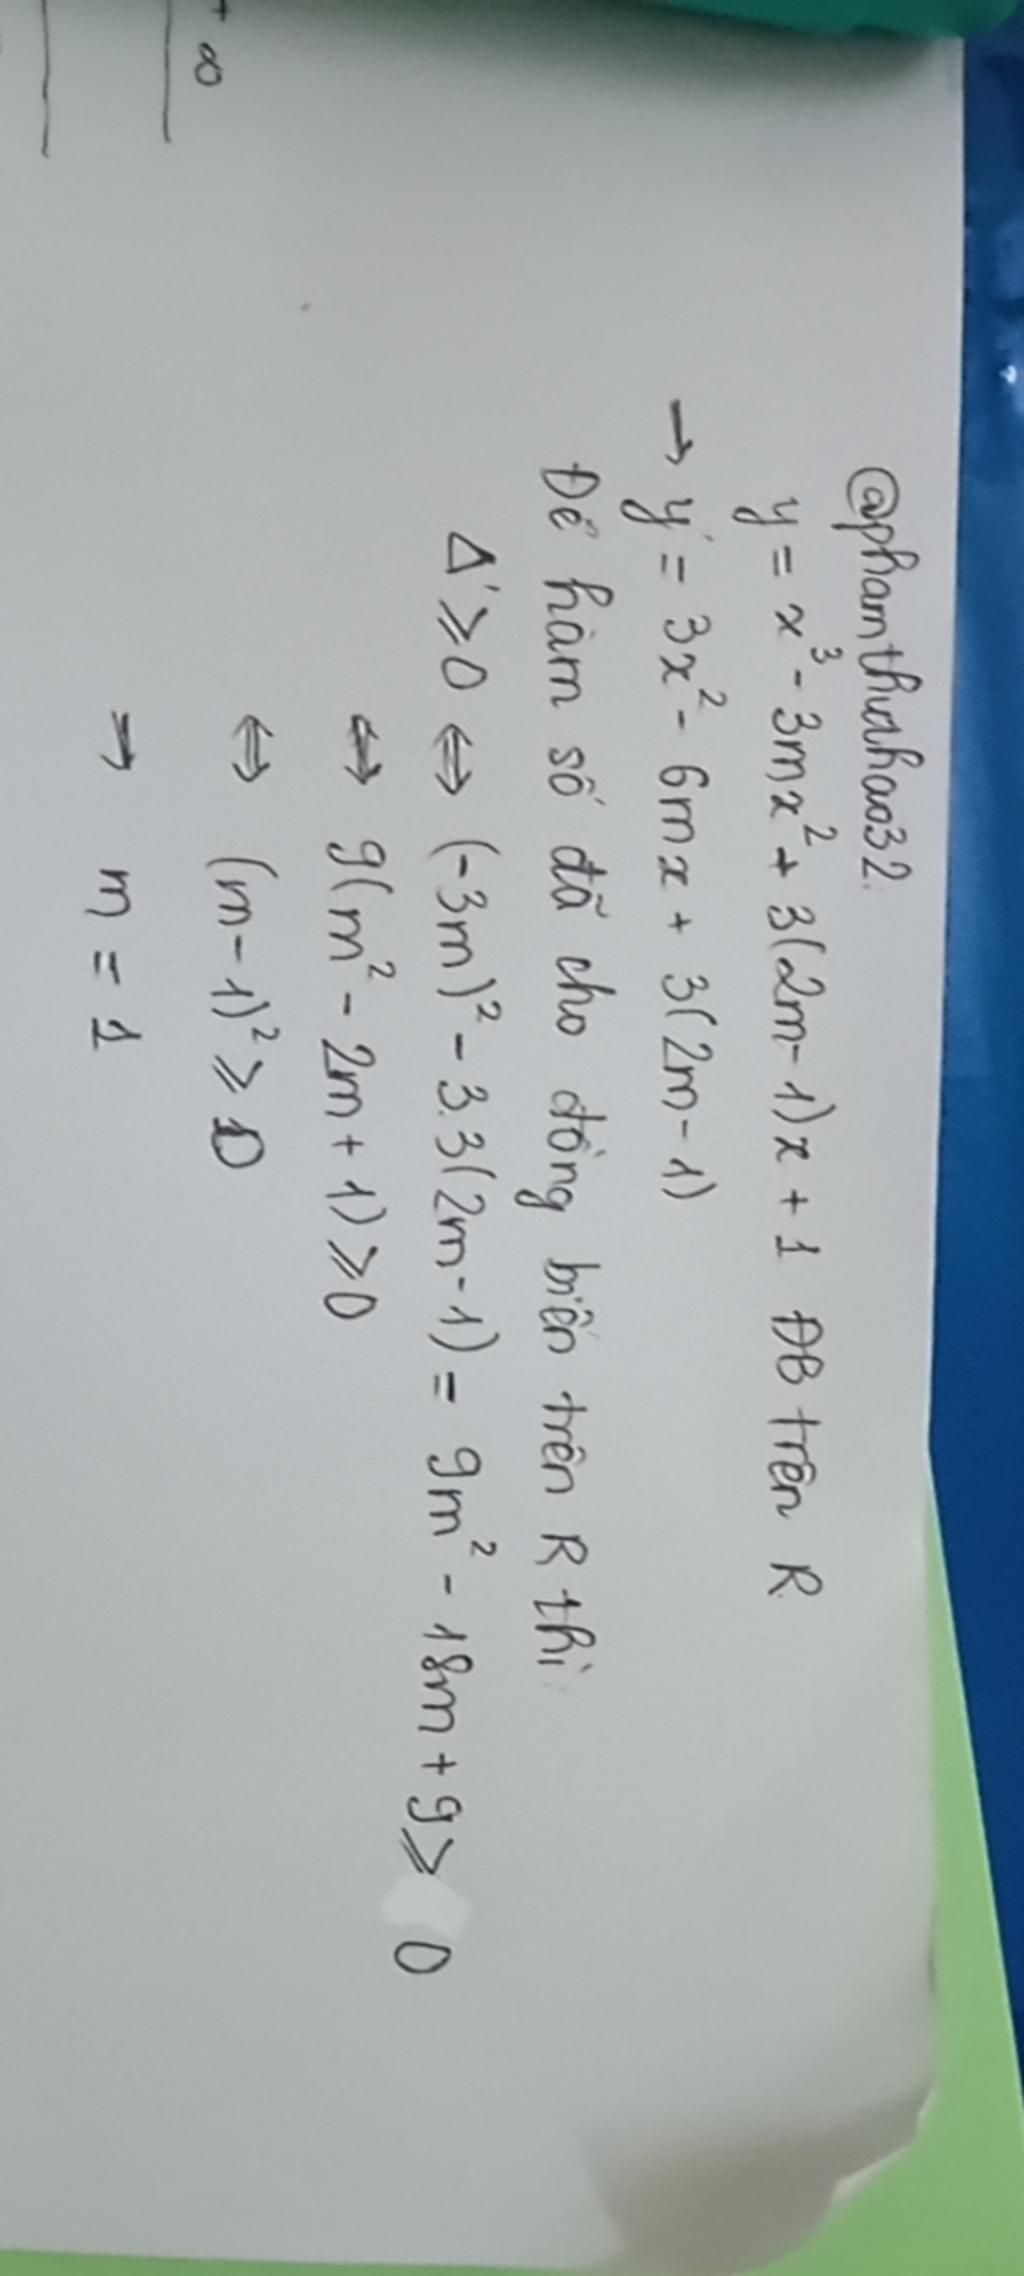 + ∞
@phamthuhao32.
y = x³ - 3mx² + 3(2m-1)x + 1 ĐB trên R
→ y' = 3x² - 6mx + 3(2m-1)
Để hàm số đã cho đồng biến trên R thì
Δ' ⩾ 0 ⇔ (-3m)² - 3.3(2m-1) = 9m² - 18m + 9 ⩾ 0
⇔ 9(m² - 2m + 1) ⩾ 0
⇔ (m-1)² ⩾ 0
⇒ m = 1